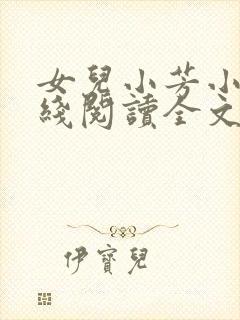 女兒小芳小
綫閱讀全文
伊寶兒